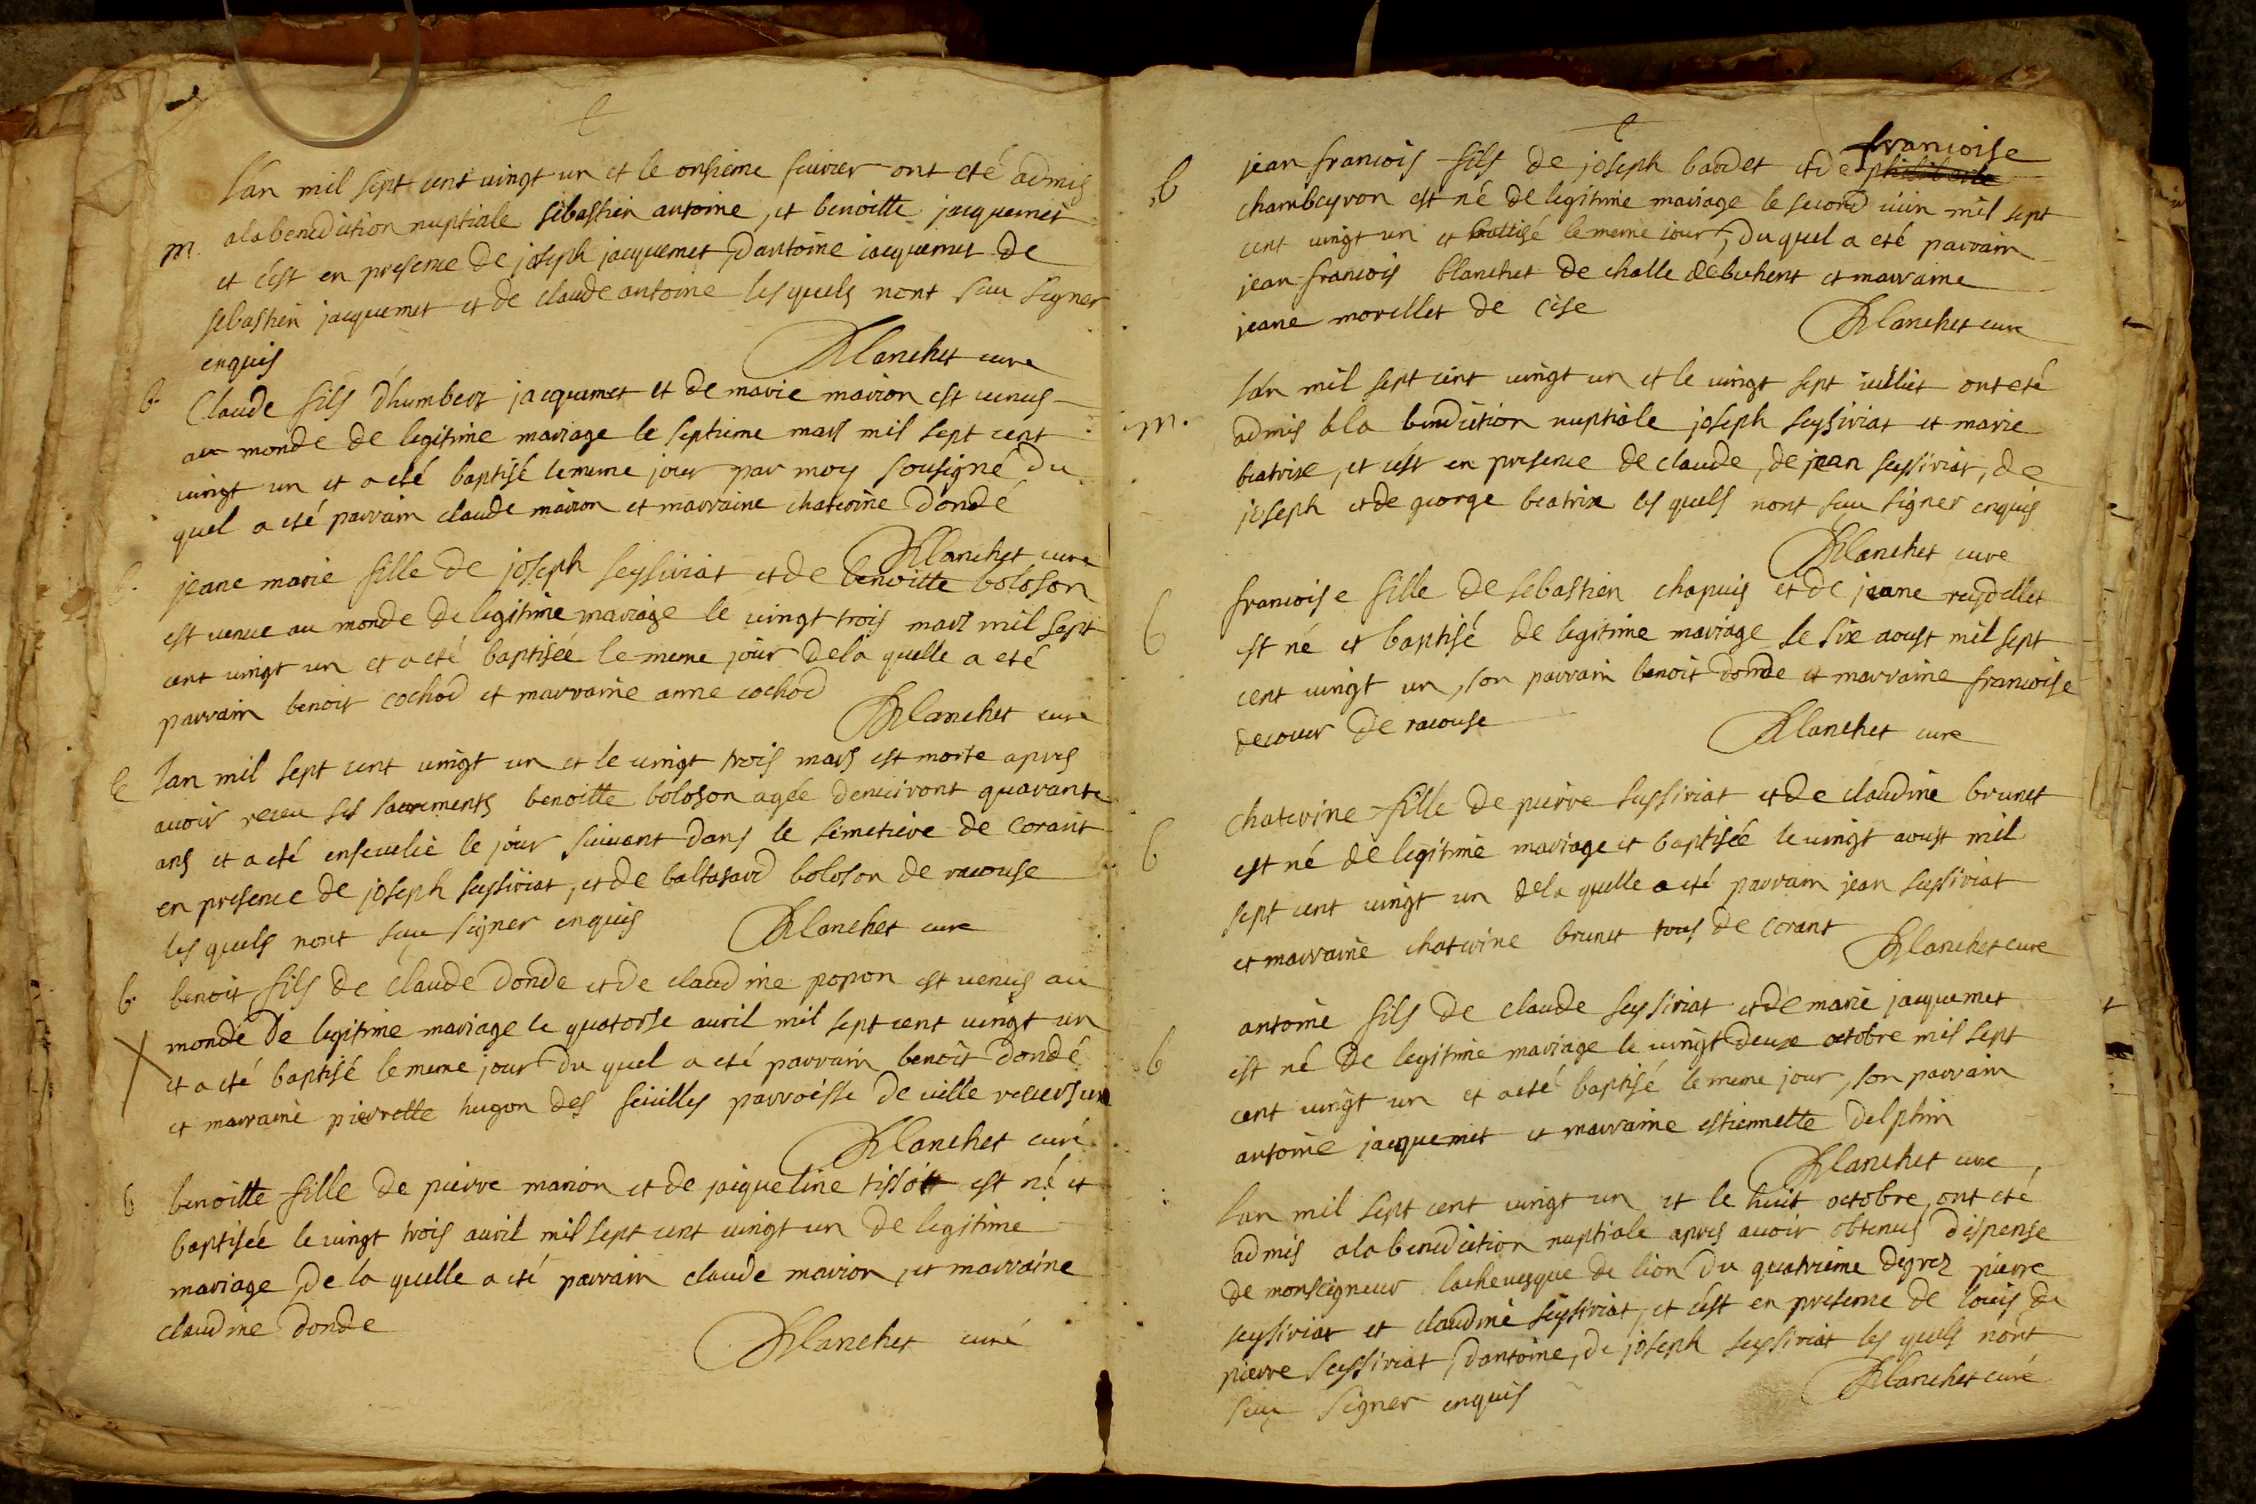 lan mil sept cent vingt un et le onsieme feuvrier ont eté admis
m. ala benediction nuptiale sebastien antoine, et benoitte jacquemet
et cést en presence de joseph jacquemet, dantoine jacquemet de
sebastien jacquemet et de claude antoine lesquels nont sceu signer
enquis Blanchet cure
b. Claude fils d'humbert jacquemet et de marie marion est venus
au monde de legitime mariage le septieme mars mil sept cent
vingt un et a eté baptisé le meme jour par moy sousigné du
quel a eté parrain claude marion et marraine chaterine dondé
Blanchet cure
b. jeane marie fille de joseph seyssiriat et de benoitte boloson
est venue au monde de legitime mariage le vingt trois mars mil sept
cent vingt un et a eté baptisée le meme jour dela quelle a eté
parrain benoit cochod et marraine anne cochod
Blanchet cure
e lan mil sept cent vingt un et le vingt trois mars est morte apres
avoir receu ses sacrements benoitte boloson agée denviront quarante
ans et a eté ensevelie le jour suivant dans le semetiere de corant
en presence de joseph seyssiriat, et de baltasard boloson de racouse
les quels nont sceu signer enquis Blanchet cure
b. benoit fils de claude donde et de claudine popon est venus au
monde de legitime mariage le quatorse avril mil sept cent vingt un
et a eté baptisé le meme jour du quel a eté parrain benoit dondé
et marraine pierrette hugon des feuilles parroisse de ville reversure
Blanchet curé
b benoitte fille de pierre marion et de jaiqueline tissott est né et
baptisée le vingt trois avril mil sept cent vingt un de legitime
mariage, de la quelle a eté parrain claude marion, et marraine
claudine donde
Blanchet curé
francoise
b jean francois fils de joseph bardet et de philiberte
chambeyron est né de legitime mariage le second iuin mil sept
cent vingt un et battisé le meme iour, du quel a eté parrain
jean francois blanchet de challe débuhent et marraine
jeane morellet de cise Blanchet cure
lan mil sept cent vingt un et le vingt sept iuilliet ont eté
m. admis à la benediction nuptiale joseph seyssiriat et marie
beatrixe, et cést en presence de claude, de jean seyssiriat, de
joseph et de george beatrix les quels nont sceu signer enquis
Blanchet cure
b francoise fille de sebastien chapuis et de jeane reydellet
est né et baptisé de legitime mariage le six aoust mil sept
cent vingt un, son parrain benoit donde et marraine francoise
decour de racouse Blanchet cure
chaterine fille de pierre seyssiriat et de claudine brunet
b est né de legitime mariage et baptisée le vingt aoust mil
sept cent vingt un dela quelle a eté parrain jean seyssiriat
et marraine chaterine brunet tous de corant
Blanchet cure
antoine fils de claude seyssiriat et de marie jacquemet
b est né de legitime mariage le vingt deux octobre mil sept
cent vingt un et a eté baptisé le meme jour, son parrain
antoine jacquemet et marraine estiennette delphin
Blanchet cure
lan mil sept cent vingt un et le huit octobre, ont eté
admis ala benediction nuptiale apres avoir obtenus dispense
de monseigneur lachevesque de lion du quatrieme degrez pierre
seyssiriat et claudine seyssiriat, et cést en presence de louis de
pierre seyssiriat, dantoine, de joseph seyssiriat les quels nont
sceu signer enquis Blanchet curé